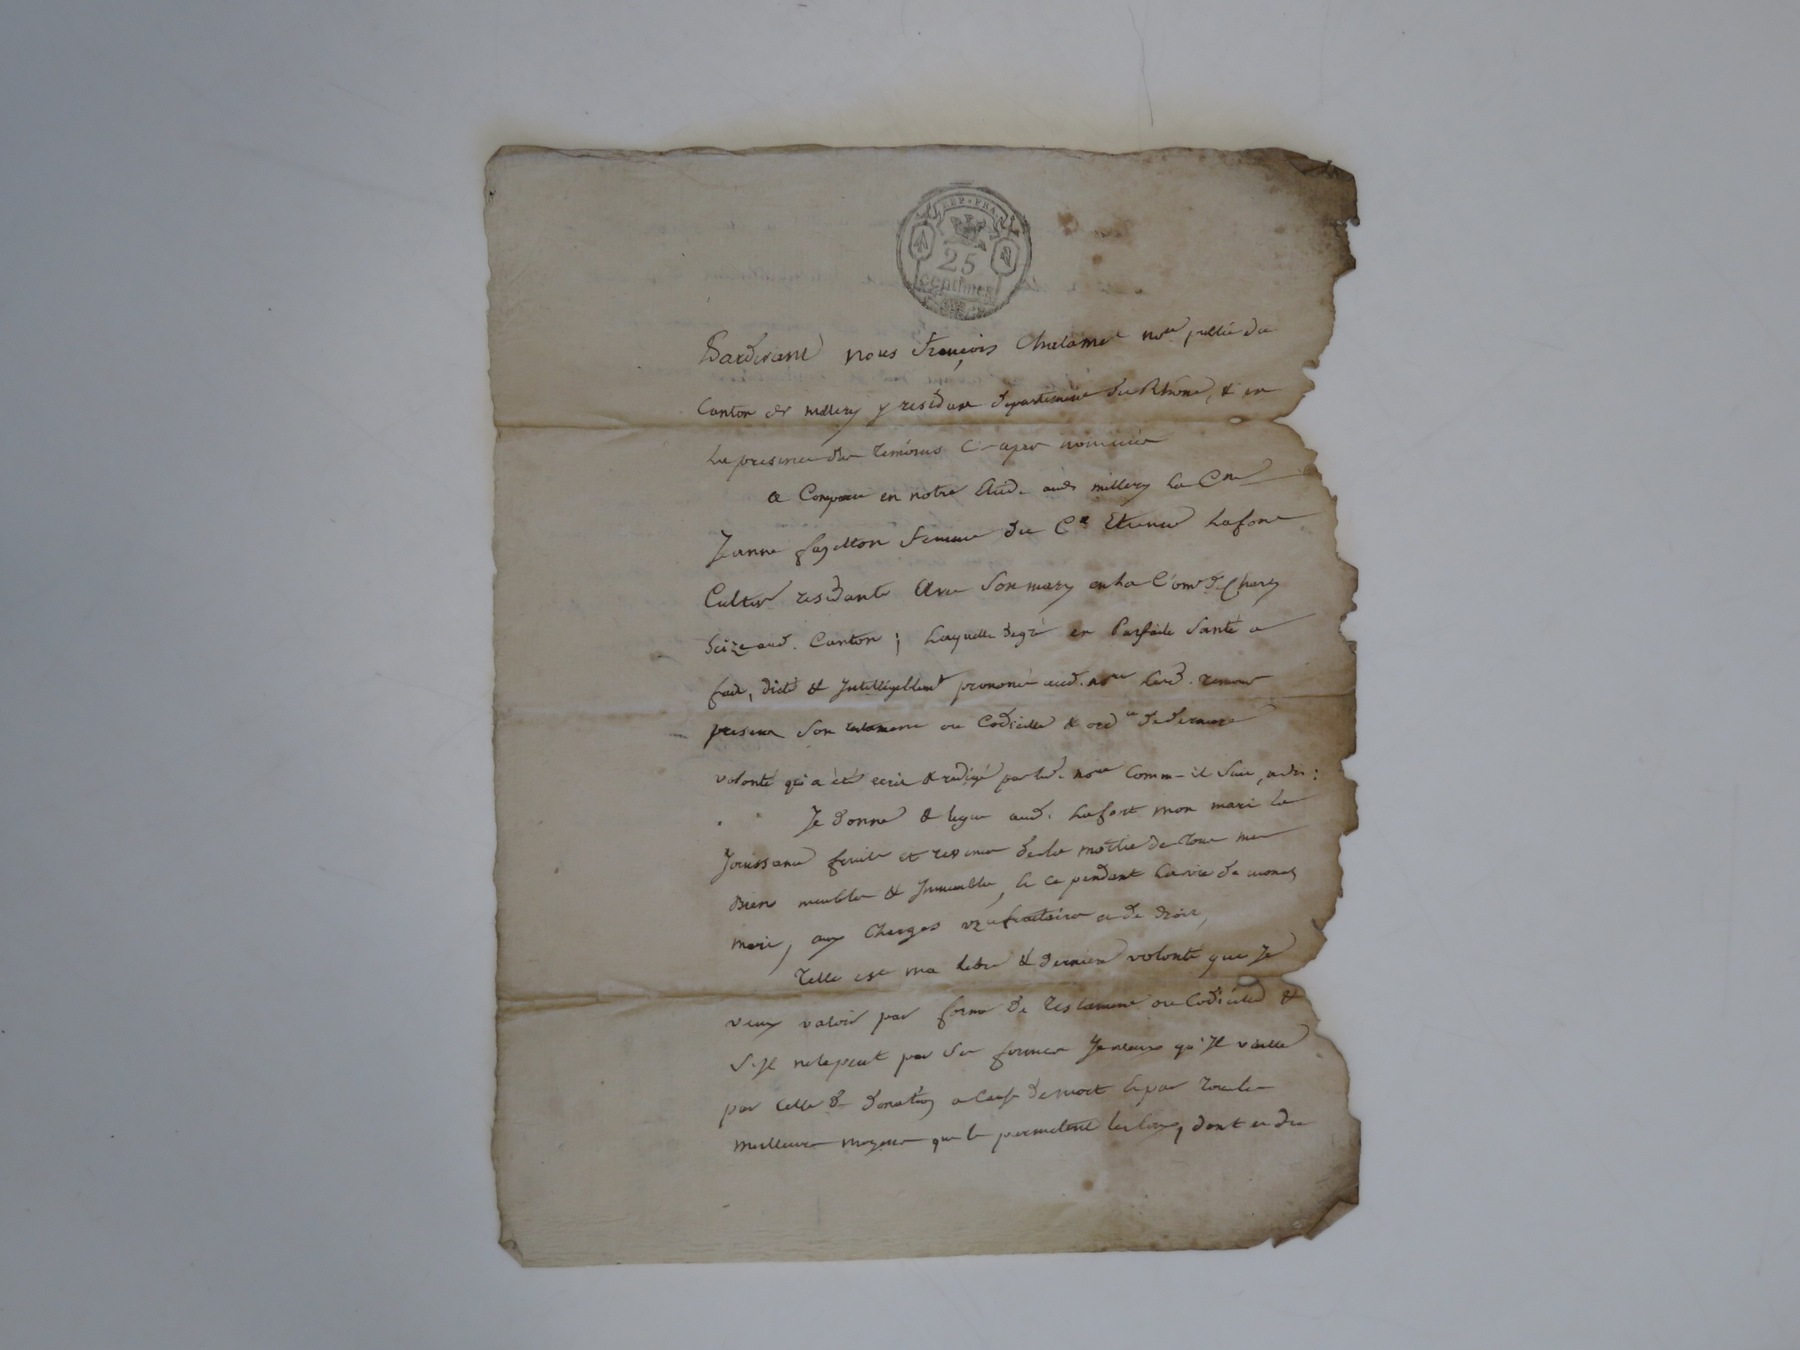 REP. FRA.
25
centimes
Pardevant nous françois Chalamel nore public du
Canton de millery y residant departement du Rhone, & en
la presence des temoins ci-apres nommés
a Comparu en notre Etud. aud. millery la Cne
Jeanne fayetton femme du Cn Etienne Lafont
Cultivr residante avec son mary en la Comne de Charly
Seize aud. Canton ; Laquelle de gré en Parfaite Santé a
fait, dicté & Intelligiblemt prononcé aud. nore lesd. temoins
presens son testament ou Codicille & ordce de derniere
volonté qui a été ecrit & redigé par led. nore comm-il suit, :
Je donne & legue aud. Lafont mon mari la
Jouissance fruits et revenus de la moitié de tous mes
Biens meubles & Immeubles, & ce pendant la vie de mond.
mari, aux Charges uzufruitaires de droit,
Telle est ma libre & derniere volonté que Je
veux valoir par forme de testament ou Codicille &
S'Il ne le peut par Sa forme Je veux qu'Il vaille
par celle de donation a Cause de mort & par tous les
meilleurs moyens que le permettent les loix, dont et du